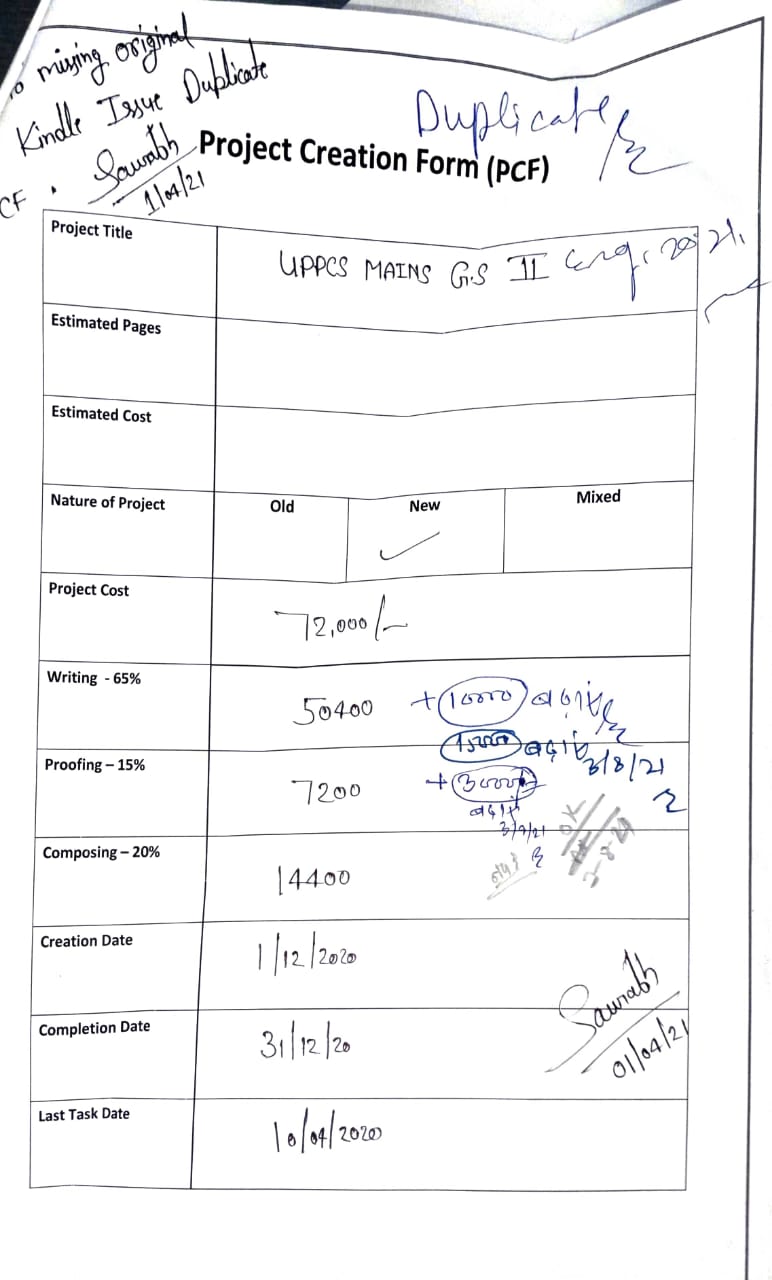 missing original
Kindle Issue Duplicate
CF. Saurabh
1/04/21
Duplicate
Project Creation Form (PCF)
Project Title UPPCS MAINS G.S II Eng.
Estimated Pages
Estimated Cost
Nature of Project Old New Mixed
Project Cost 72,000/-
Writing - 65% 50400 +
Proofing – 15% 7200 + 3/8/21
3/9/21
Composing – 20% 14400
Creation Date 1/12/2020
Completion Date 31/12/20
Saurabh
01/04/21
Last Task Date 10/04/2020